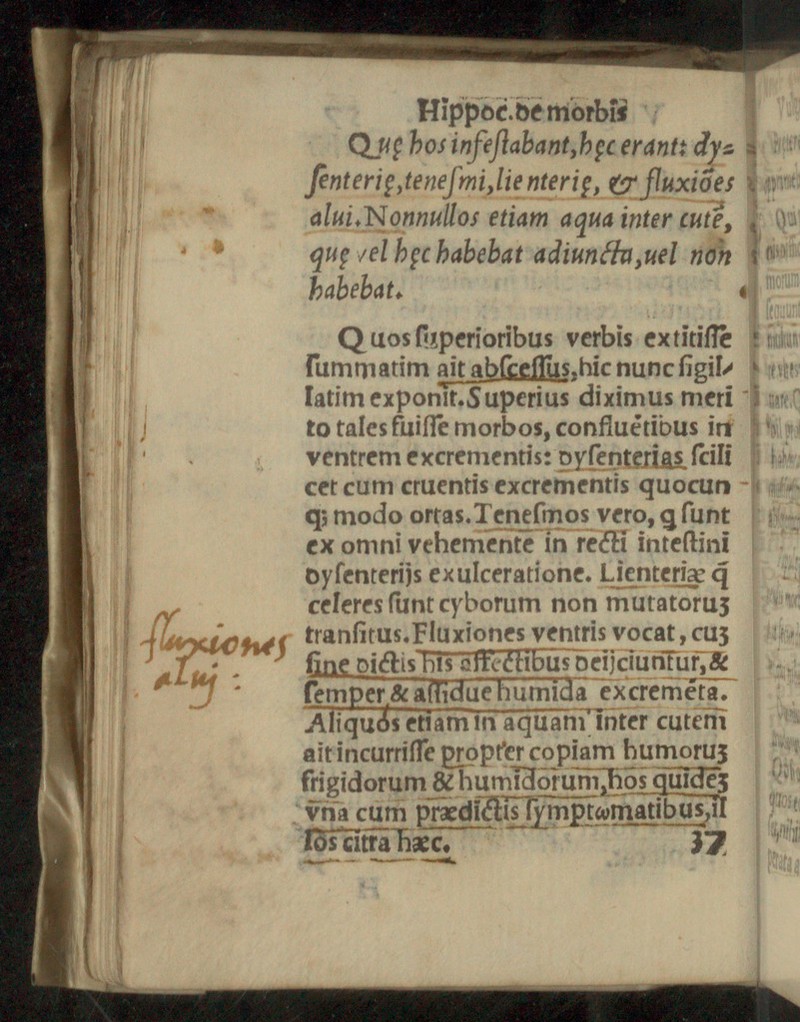 Hippoc. de morbis
Quę hos infeſtabant, hęc erant: dy=
ſenterię, teneſmi, lienterię, & fluxiões
alui. Nonnullos etiam aqua inter cutẽ,
quę vel hęc habebat adiuncta, uel non
habebat.
Quos ſuperioribus verbis extitiſſe
ſummatim ait abſceſſus, hic nunc ſigil⸗
latim exponit. Superius diximus meri
to tales fuiſſe morbos, confluẽtibus in
ventrem excrementis: dyſenterias ſcili
cet cum cruentis excrementis quocun
qꝫ modo ortas. Teneſmos vero, q ſunt
ex omni vehemente in recti inteſtini
dyſenterijs exulceratione. Lienteriæ q̃
celeres ſunt cyborum non mutatoruꝫ
tranſitus. Fluxiones ventris vocat, cuꝫ
ſine dictis his affectibus deijciuntur, &
ſemper & aſſidue humida excremẽta.
Aliquos etiam in aquam inter cutem
ait incurriſſe propter copiam humoruꝫ
frigidorum & humidorum, hos quideꝫ
vna cum prædictis ſymptωmatibus, il
los citra hæc.
37
fluxiones
aluj :